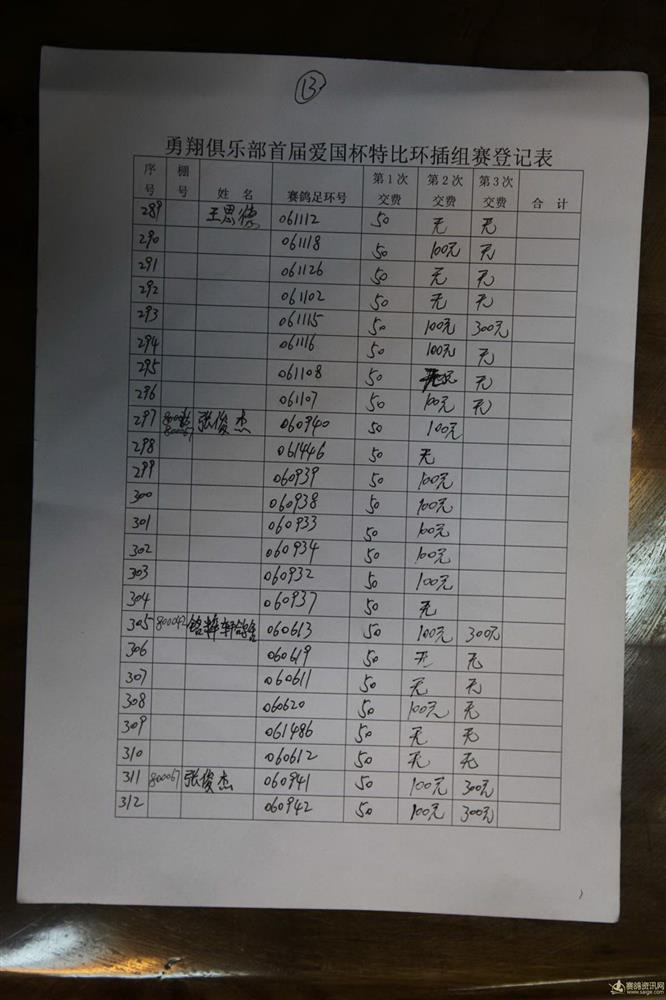 13
勇翔俱乐部首届爱国杯特比环插组赛登记表
序号 棚号 姓 名 赛鸽足环号 第1次交费 第2次交费 第3次交费 合 计
289 王思德 061112 50 无 无
290 061118 50 100元 无
291 061126 50 无 无
292 061102 50 无 无
293 061115 50 100元 300元
294 061116 50 100元 无
295 061108 50 无
296 061107 50 100元 无
297 80067 张俊杰 060940 50 100元
298 061446 50 无
299 060939 50 100元
300 060938 50 100元
301 060933 50 100元
302 060934 50 100元
303 060932 50 100元
304 060937 50 无
305 800042 060613 50 100元 300元
306 060619 50 无 无
307 060611 50 无 无
308 060620 50 100元 无
309 061486 50 无 无
310 060612 50 无 无
311 80067 张俊杰 060941 50 100元 300元
312 060942 50 100元 300元
赛鸽资讯网
www.saige.com